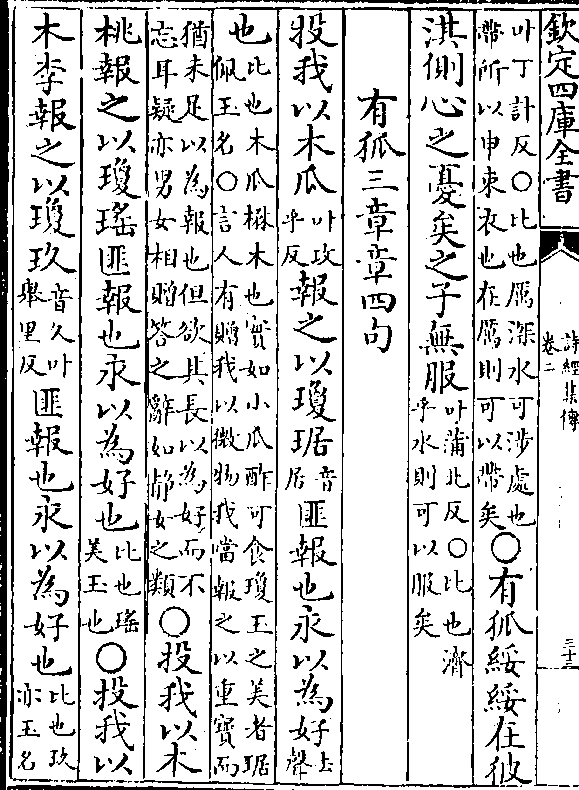 欽定四庫全書
詩經集傳
卷二
三十三
叶丁計反〇比也厲深水可涉處也
帶所以申束衣也在厲則可以帶矣
〇有狐綏綏在彼
淇側心之憂矣之子無服
叶蒲北反〇比也濟
乎水則可以服矣
有狐三章章四句
投我以木瓜
叶攻
乎反
報之以瓊琚
音
居
匪報也永以為好
上
聲
也
比也木瓜楙木也實如小瓜酢可食瓊玉之美者琚
佩玉名〇言人有贈我以微物我當報之以重寶而
猶未足以為報也但欲其長以為好而不
忘耳疑亦男女相贈答之辭如靜女之類
〇投我以木
桃報之以瓊瑤匪報也永以為好也
比也瑤
美玉也
〇投我以
木李報之以瓊玖
音久叶
舉里反
匪報也永以為好也
比也玖
亦玉名